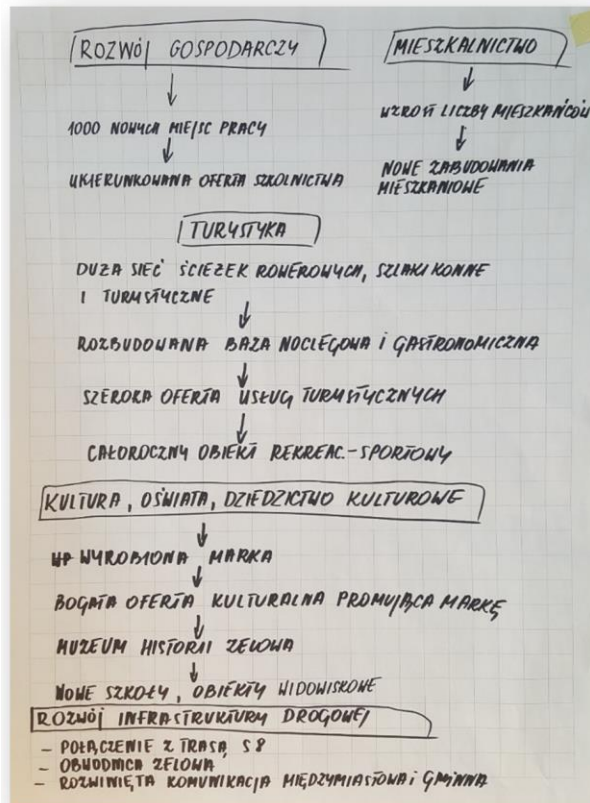 ROZWÓJ GOSPODARCZY
1000 NOWYCH MIEJSC PRACY
UKIERUNKOWANA OFERTA SZKOLNICTWA
MIESZKALNICTWO
WZROST LICZBY MIESZKAŃCÓW
NOWE ZABUDOWANIA
MIESZKANIOWE
TURYSTYKA
DUŻA SIEĆ ŚCIEŻEK ROWEROWYCH, SZLAKI KONNE
I TURYSTYCZNE
ROZBUDOWANA BAZA NOCLEGOWA I GASTRONOMICZNA
SZEROKA OFERTA USŁUG TURYSTYCZNYCH
CAŁOROCZNY OBIEKT REKREAC.-SPORTOWY
KULTURA, OŚWIATA, DZIEDZICTWO KULTUROWE
WYROBIONA MARKA
BOGATA OFERTA KULTURALNA PROMUJĄCA MARKĘ
MUZEUM HISTORII ZELOWA
NOWE SZKOŁY, OBIEKTY WIDOWISKOWE
ROZWÓJ INFRASTRUKTURY DROGOWEJ
- POŁĄCZENIE Z TRASĄ S8
- OBWODNICA ZELOWA
- ROZWINIĘTA KOMUNIKACJA MIĘDZYMIASTOWA I GMINNA